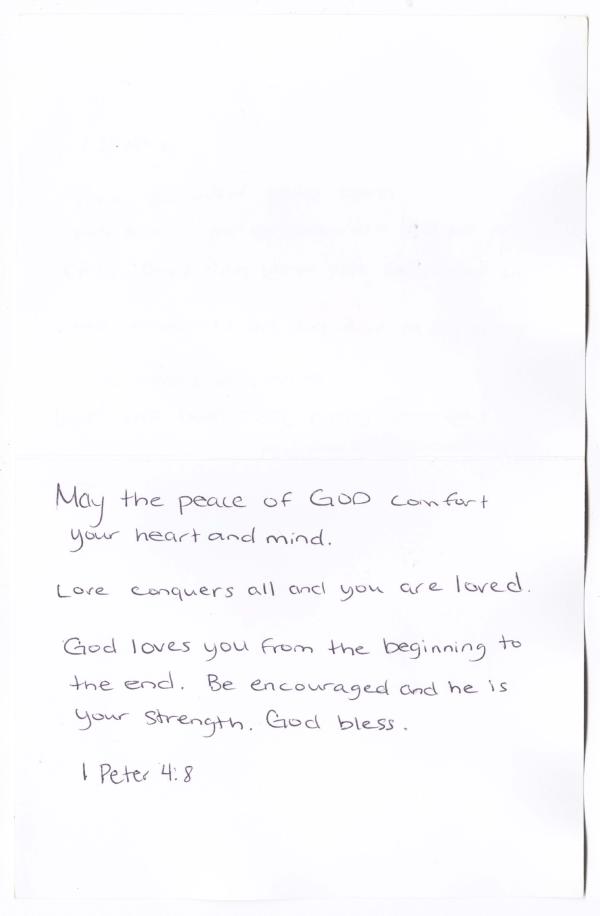 May the peace of GOD comfort
your heart and mind.
Love conquers all and you are loved.
God loves you from the beginning to
the end. Be encouraged and he is
your strength. God bless.
1 Peter 4:8